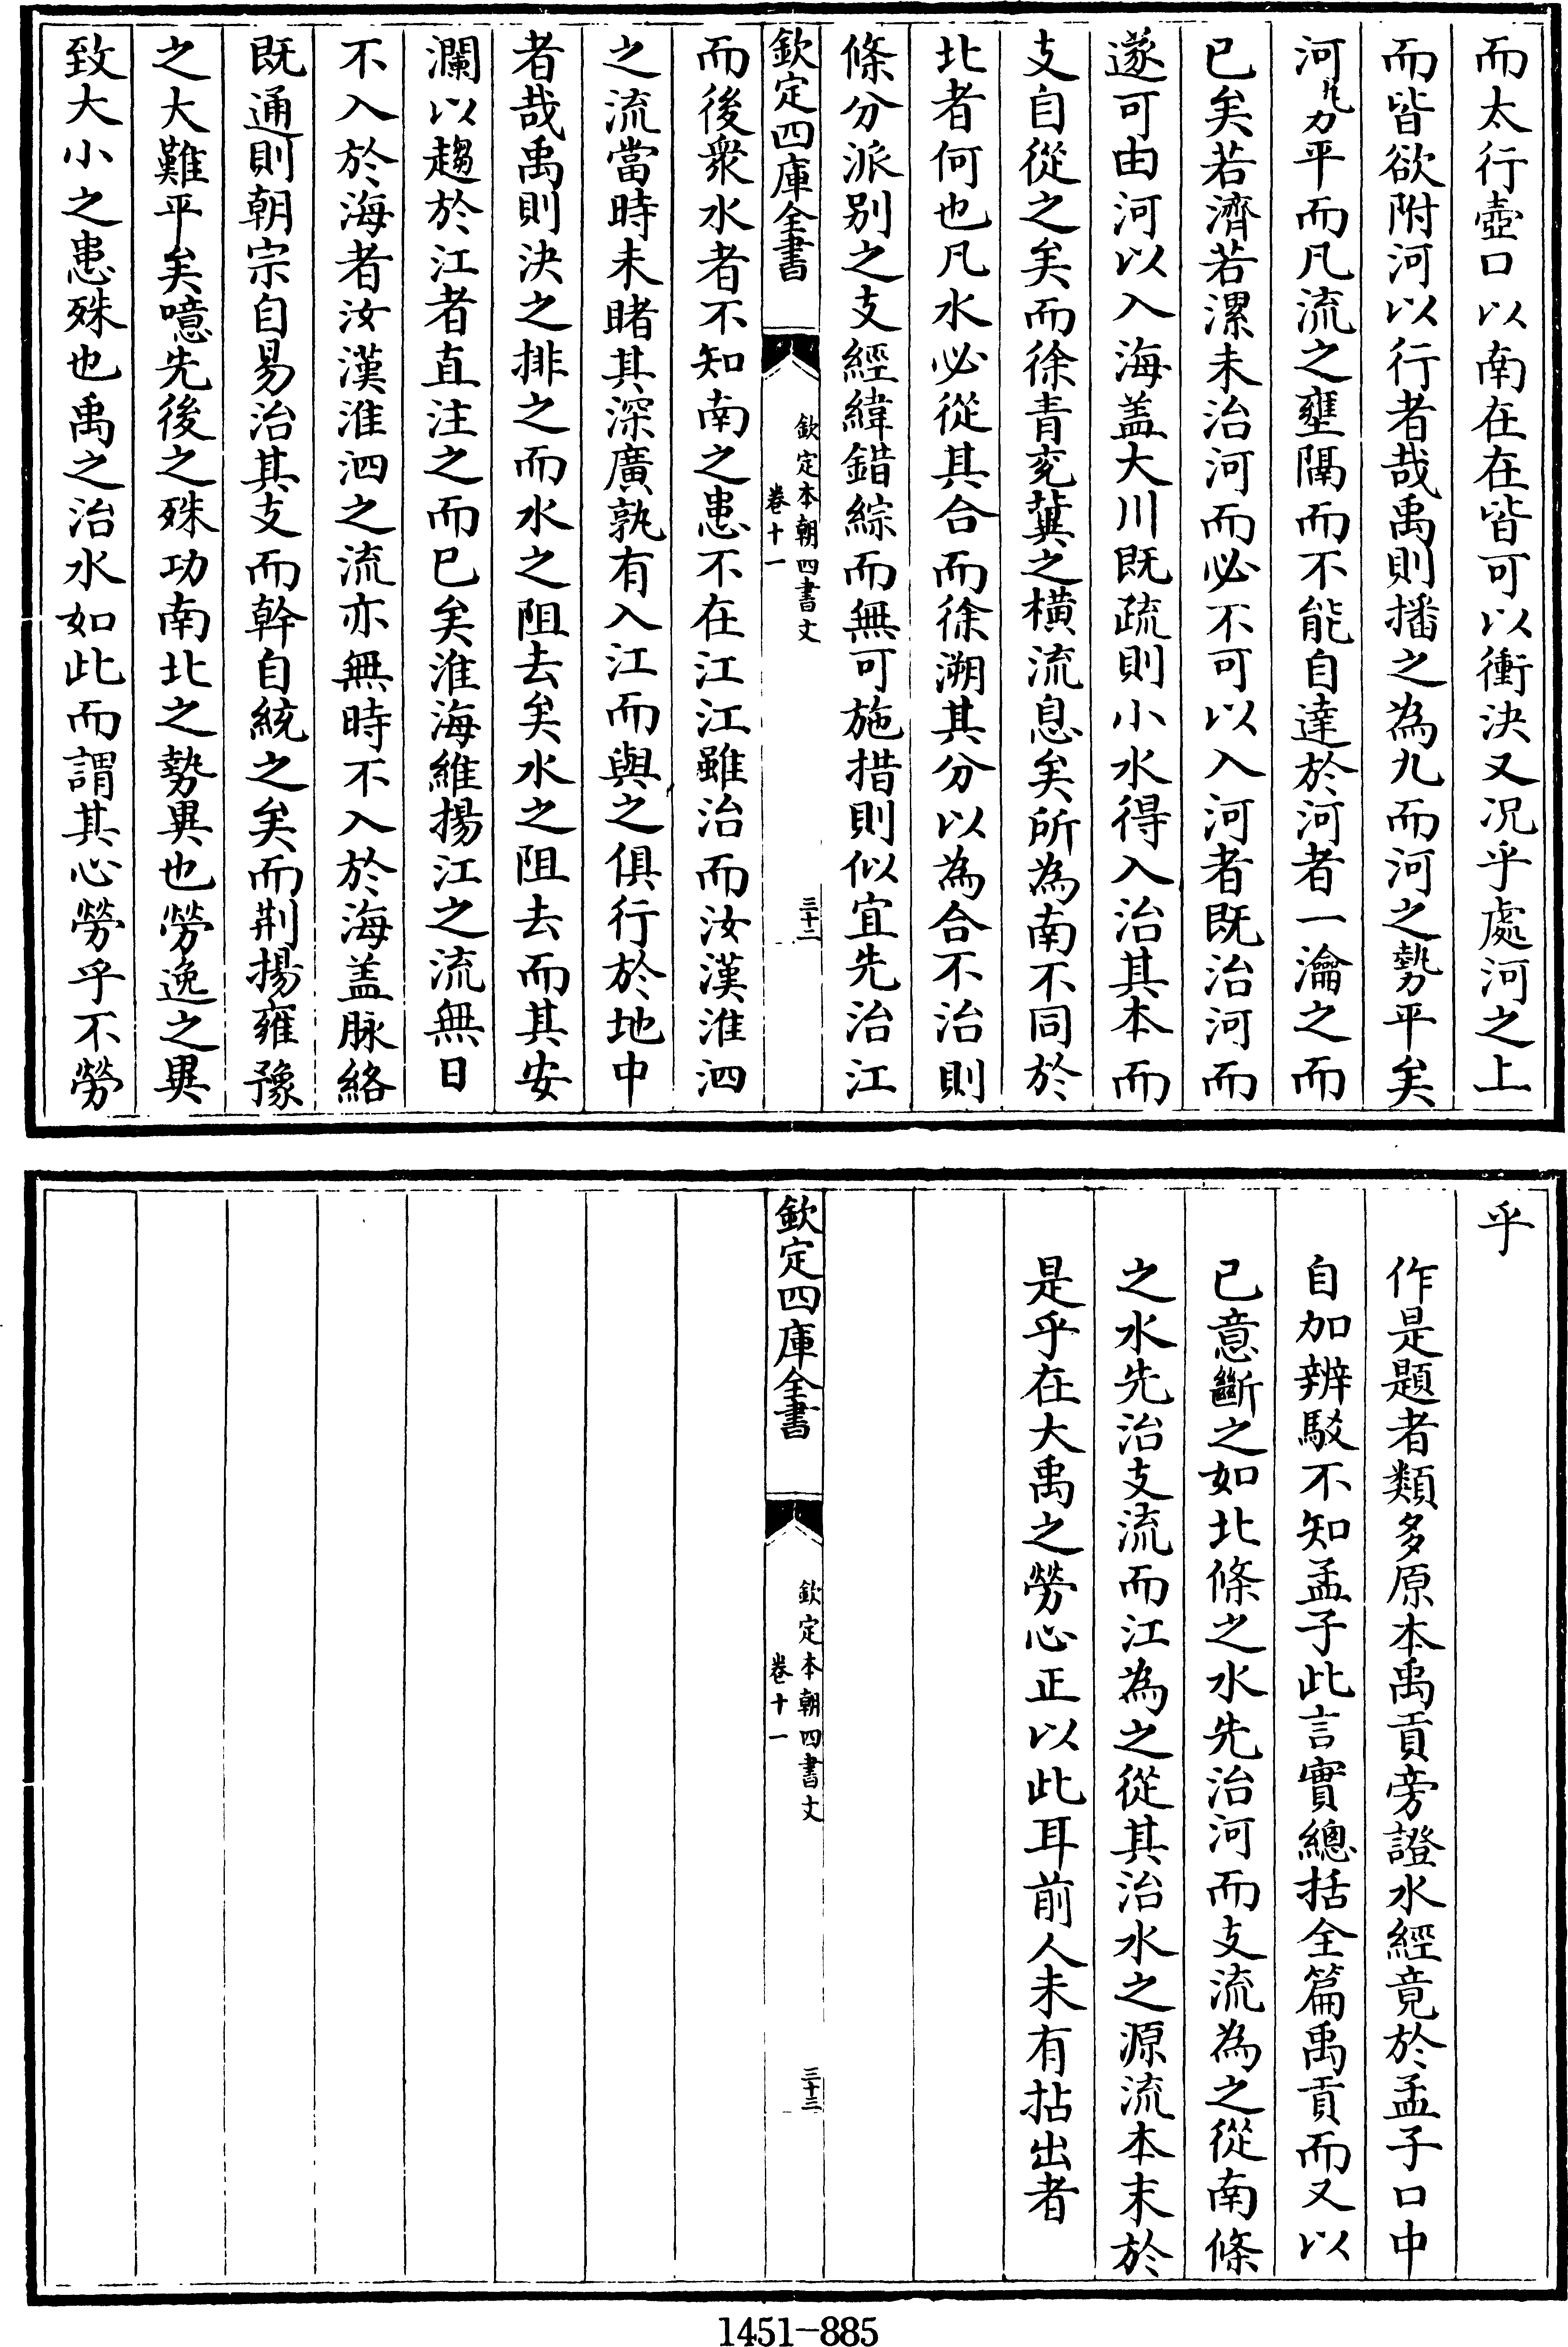 而太行壺口以南在在皆可以衝決又况乎處河之上
而皆欲附河以行者哉禹則播之為九而河之勢平矣
河勢平而凡流之壅閼而不能自達於河者一瀹之而
已矣若濟若漯未治河而必不可以入河者既治河而
遂可由河以入海盖大川既疏則小水得入治其本而
支自從之矣而徐青兖冀之橫流息矣所為南不同於
北者何也凡水必從其合而徐溯其分以為合不治則
條分派别之支經緯錯綜而無可施措則似宜先治江
欽定四庫全書
欽定本朝四書文
卷十一
三十二
而後衆水者不知南之患不在江江雖治而汝漢淮泗
之流當時未睹其深廣孰有入江而與之俱行於地中
者哉禹則決之排之而水之阻去矣水之阻去而其安
瀾以趨於江者直注之而已矣淮海維揚江之流無日
不入於海者汝漢淮泗之流亦無時不入於海盖脉絡
既通則朝宗自易治其支而幹自統之矣而荆揚雍豫
之大難平矣噫先後之殊功南北之勢異也勞逸之異
致大小之患殊也禹之治水如此而謂其心勞乎不勞
乎
作是題者類多原本禹貢旁證水經竟於孟子口中
自加辨駁不知孟子此言實總括全篇禹貢而又以
己意斷之如北條之水先治河而支流為之從南條
之水先治支流而江為之從其治水之源流本末於
是乎在大禹之勞心正以此耳前人未有拈出者
欽定四庫全書
欽定本朝四書文
卷十一
三十三
1451-885